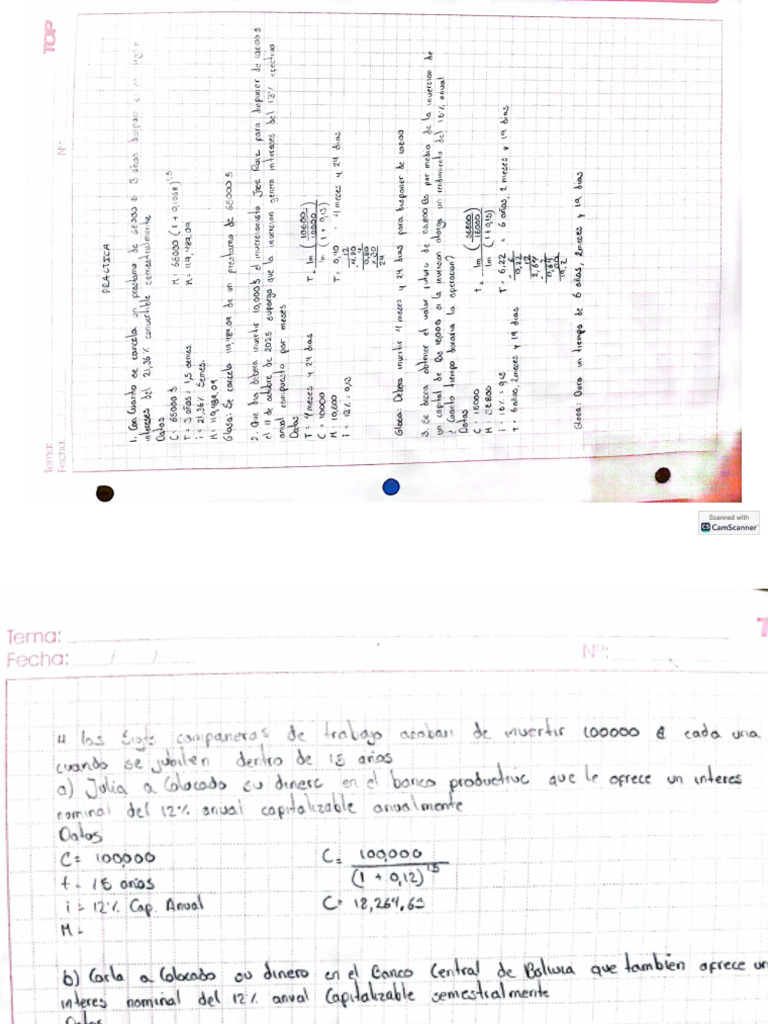 TOP
Tema:
Fecha:
Nº:
PRACTICA
1. Con cuanto se cancela un prestamo de 65000 $ 3 años
intereses del 21,36% convertible cemestralmente
Datos
C: 65000 $
T = 3 años: 1,5 semes
i = 21,36% Semes.
M: 119,489.09
M: 65000 (1 + 0,1068)
M: 119,489.09
Glosa: Se cancela 119,489.09 de un prestamo de 65000 $
2. Que dia debera invertir 10,000 $ el inversionista Jose Ruiz para disponer de 10600 $
el 11 de octubre de 2025 suponga que la inversion genera intereses del 13% efectivo
anual compuesto por meses
Datos
T = 4 meses y 24 dias
C = 10000
M = 10,600
T = lm (10600/10000)
lm (1 + 0,13)
T = 0,40 = 4 meses y 24 dias
12
4.80
4
0,80
x 30
24
Glosa: Debera invertir 4 meses y 24 dias para disponer de 10600
3. Se busca obtener el valor futuro de Bs por medio de la inversion de
un capital de Bs si la inversion otorga un rendimiento del anual
¿ Cuanto tiempo duraria la operacion?
Datos
T = 6,22 = 6 años, 2 meses y 19 dias
- 6
0,22
12
2,64
- 2
0,64
30
19,2
t = 6 años, 2 meses y 19 dias
Glosa: Dura un tiempo de 6 años, 2 meses y 19 dias
Scanned with
CS CamScanner
Tema:
Fecha: / /
Nº:
4 los compañeros de trabajo acaban de invertir 100000 cada una
cuando se jubilen dentro de 15 años
a) Julia a Colocado su dinero en el banco productivo que le ofrece un interes
nominal del 12% anual capitalizable anualmente
Datos
C = 100,000
t = 15 años
i = 12% Cap. Anual
M =
C = 100,000
(1 + 0,12)^15
C = 18,264.63
b) Carla a Colocado su dinero en el Banco Central de Bolivia que tambien ofrece un
interes nominal del 12% anual Capitalizable semestralmente
Datos